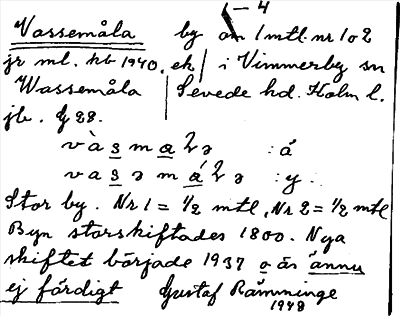 – 4
Vassemåla by om 1 mtl. nr 1 o 2
jr ml. kb 1940. ek i Vimmerby sn
Wassemåla Sevede hd. Kalm l.
jb. 88.
và s m a l ə : å
va s ə m á l ə : y.
Stor by. Nr 1 = 1/2 mtl, Nr 2 = 1/2 mtl
Byn storskiftades 1800. Nya
skiftet började 1937 o är ännu
ej färdigt Gustaf Ramminge
1948